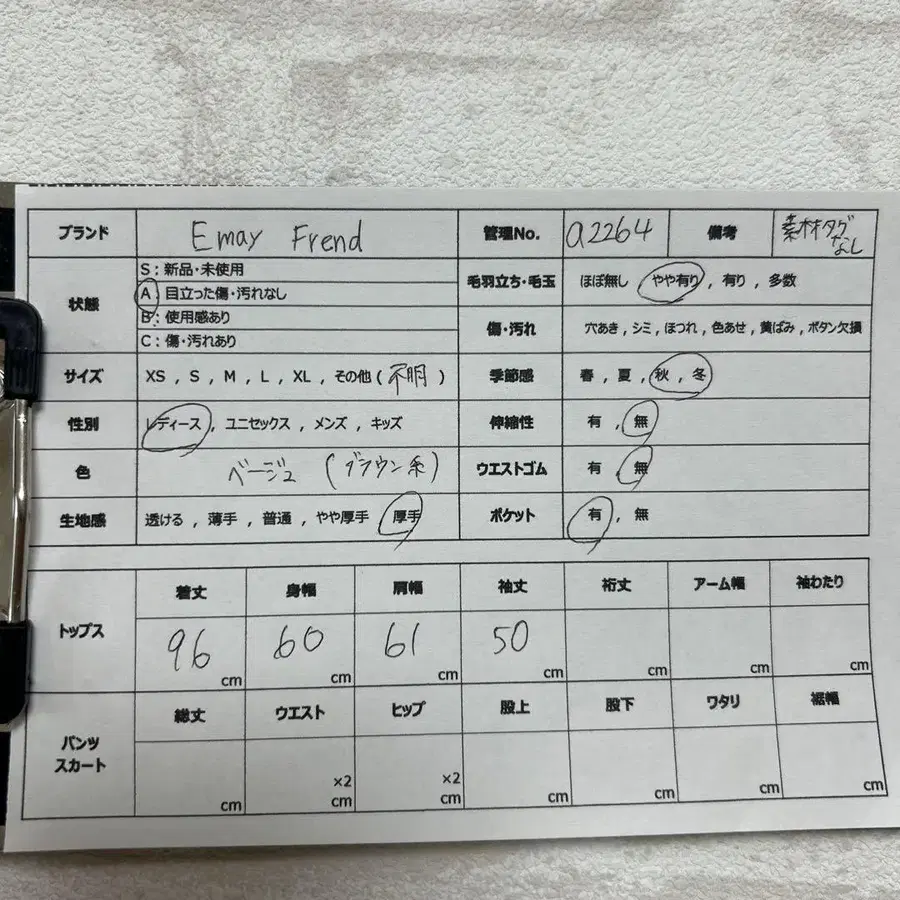 ブランド Emay Frend 管理No. a2264 備考 素材タグなし
状態
S：新品・未使用
A：目立った傷・汚れなし
B：使用感あり
C：傷・汚れあり
毛羽立ち・毛玉 ほぼ無し , やや有り , 有り , 多数
傷・汚れ 穴あき , シミ , ほつれ , 色あせ , 黄ばみ , ボタン欠損
サイズ XS , S , M , L , XL , その他 ( 不明 ) 季節感 春 , 夏 , 秋 , 冬
性別 レディース , ユニセックス , メンズ , キッズ 伸縮性 有 , 無
色 ベージュ (ブラウン系) ウエストゴム 有 , 無
生地感 透ける , 薄手 , 普通 , やや厚手 , 厚手 ポケット 有 , 無
トップス
着丈 身幅 肩幅 袖丈 裄丈 アーム幅 袖わたり
96 cm 60 cm 61 cm 50 cm cm cm cm
パンツ
スカート
総丈 ウエスト ヒップ 股上 股下 ワタリ 裾幅
×2 ×2
cm cm cm cm cm cm cm